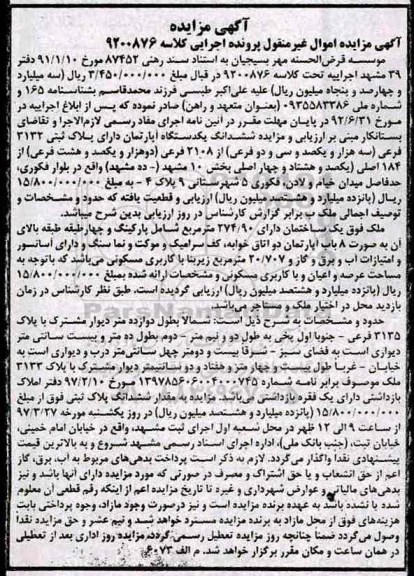 آگهی مزایده
آگهی مزایده اموال غیرمنقول پرونده اجرایی کلاسه ۹۲۰۰۸۷۶
موسسه قرض‌الحسنه مهر بسیجیان به استناد سند رهنی ۸۷۴۵۲ مورخ ۹۱/۱/۱۰ دفتر
۳۹ مشهد اجراییه تحت کلاسه ۹۲۰۰۸۷۶ در قبال مبلغ ۳/۴۵۰/۰۰۰/۰۰۰ ریال (سه میلیارد
و چهارصد و پنجاه میلیون ریال) علیه علی‌اکبر طبسی فرزند محمدقاسم بشناسنامه ۱۶۵ و
شماره ملی ۰۹۳۵۵۸۳۳۸۶ (بعنوان متعهد و راهن) صادر نموده که پس از ابلاغ اجراییه در
۹۲/۶/۳۱ مورخ در پایان مهلت مقرر در آئین نامه اجرای مفاد رسمی لازم‌الاجرا و تقاضای
بستانکار مبنی بر ارزیابی و مزایده ششدانگ یکدستگاه آپارتمان دارای پلاک ثبتی ۳۱۳۲
فرعی (سه هزار و یکصد و سی و دو فرعی) از ۲۱۰۸ فرعی (دوهزار و یکصد و هشت فرعی) از
۱۸۴ اصلی (یکصد و هشتاد و چهار اصلی) بخش ۱۰ مشهد (- ده مشهد) واقع در بلوار فکوری،
حدفاصل میدان خیام و لادن، فکوری ۵ شهرستانی ۹ پلاک ۴ - به مبلغ ۱۵/۸۰۰/۰۰۰/۰۰۰
ریال (پانزده میلیارد و هشتصد میلیون ریال) ارزیابی و قطعیت یافته که حدود و مشخصات و
توصیف اجمالی ملک ب برابر گزارش کارشناسی در روز ارزیابی بدین شرح میباشد.
ملک فوق یک ساختمان دارای ۲۷۴/۹۰ مترمربع شامل پارکینگ و چهار طبقه طبقه بالای
آن به صورت ۸ باب آپارتمان دو اتاق خوابه، کف سرامیک و موکت و نما سنگ و دارای آسانسور
و امتیازات اب و برق و گاز و ۲۰/۷۰۷ مترمربع زیربنا با کاربری مسکونی می‌باشد که باتوجه به
مساحت عرصه و اعیان و با کاربری مسکونی و مشخصات ارائه شده بمبلغ ۱۵/۸۰۰/۰۰۰/۰۰۰
ریال (پانزده میلیارد و هشتصد میلیون ریال) ارزیابی گردیده است. طبق نظر کارشناس در زمان
بازدید محل در اختیار ملک و مستاجر می‌باشد.
حدود و مشخصات به شرح ذیل است: شمالا بطول دوازده متر دیوار مشترک با پلاک
۳۱۲۵ فرعی - جنوبا اول پخی به طول دو و نیم متر - دوم بطول ده متر و بیست سانتی متر
دیواری است به فضای سبز - شرقا بیست و دومتر چهل سانتی‌متر درب و دیواری است به
خیابان - غربا طول بیست و چهار متر و هفتاد و دو سانتیمتر دیوار مشترک با پلاک ۳۱۳۳
ملک موصوف برابر نامه شماره ۱۳۹۷۸۵۶۰۶۰۰۴۰۰۰۷۴۵ مورخ ۹۷/۲/۱۰ دفتر املاک
بازداشتی دارای یک فقره بازداشتی می‌باشد. مزایده به مقدار ششدانگ پلاک ثبتی فوق از مبلغ
۱۵/۸۰۰/۰۰۰/۰۰۰ (پانزده میلیارد و هشتصد میلیون ریال) در روز یکشنبه مورخه ۹۷/۳/۲۷
از ساعت ۹ الی ۱۲ ظهر در محل شعبه اول اجرای ثبت مشهد، واقع در خیابان امام خمینی،
خیابان ثبت، (جنب بانک ملی)، اداره اجرای اسناد رسمی مشهد شروع و به بالاترین قیمت
پیشنهادی نقدا واگذار می‌گردد. لازم به ذکر است پرداخت بدهی‌های مربوط به آب، برق، گاز
اعم از حق انشعاب و یا حق اشتراک و مصرف در صورتی که مورد مزایده دارای آنها باشد و نیز
بدهی‌های مالیاتی و عوارض شهرداری و غیره تا تاریخ مزایده اعم از اینکه رقم قطعی آن معلوم
شده یا نشده باشد به عهده برنده مزایده است و نیز درصورت وجود مازاد، وجوه پرداختی بابت
هزینه‌های فوق از محل مازاد به برنده مزایده مسترد خواهد شد و نیم عشر و حق مزایده نقدا
وصول می‌گردد ضمنا چنانچه روز مزایده تعطیل رسمی گردد، مزایده روز اداری بعد از تعطیلی
در همان ساعت و مکان مقرر برگزار خواهد شد. م الف ۶۰۷۳